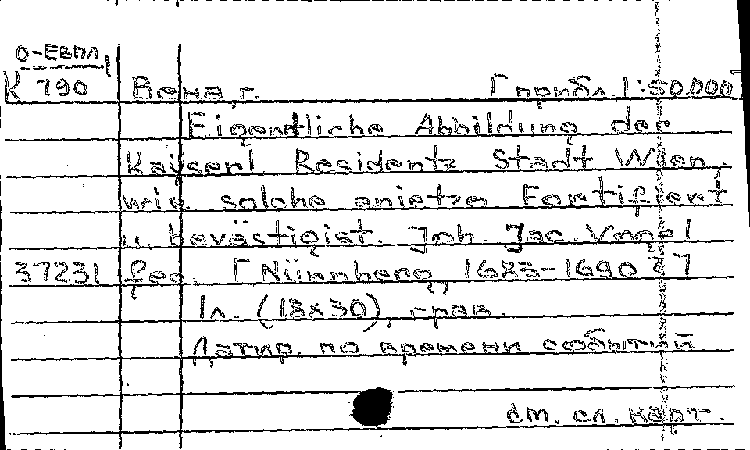 О-ЕВПЛ
К 790
Вена, г. [прибл. 1:50.000
Eigentliche Abbildung der
Kaÿserl. Residentz Stadt Wien,
wie solche anietzo Fortifiert
u. bevästigist. Joh. Jac. Vogel
37231 fec. [Nürnberg, 1683-1690?]
1 л. (18x30), грав.
Датир. по времени событий
см. сл. карт.